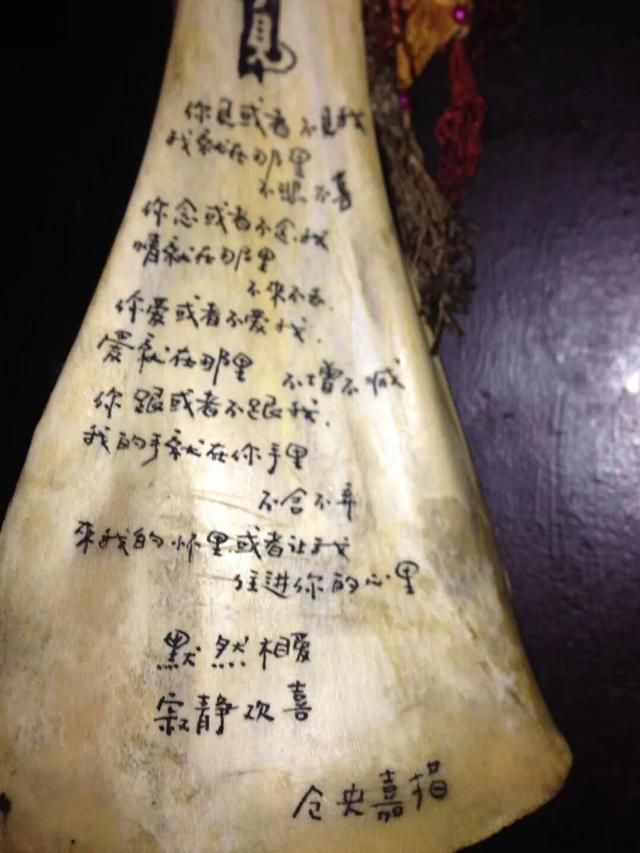 見
你见或者不见我
我就在那里
不悲不喜
你念或者不念我
情就在那里
不来不去
你爱或者不爱我.
爱就在那里 不增不减
你跟或者不跟我.
我的手就在你手里
不舍不弃
来我的怀里或者让我
住进你的心里
默然相爱
寂静欢喜
仓央嘉措